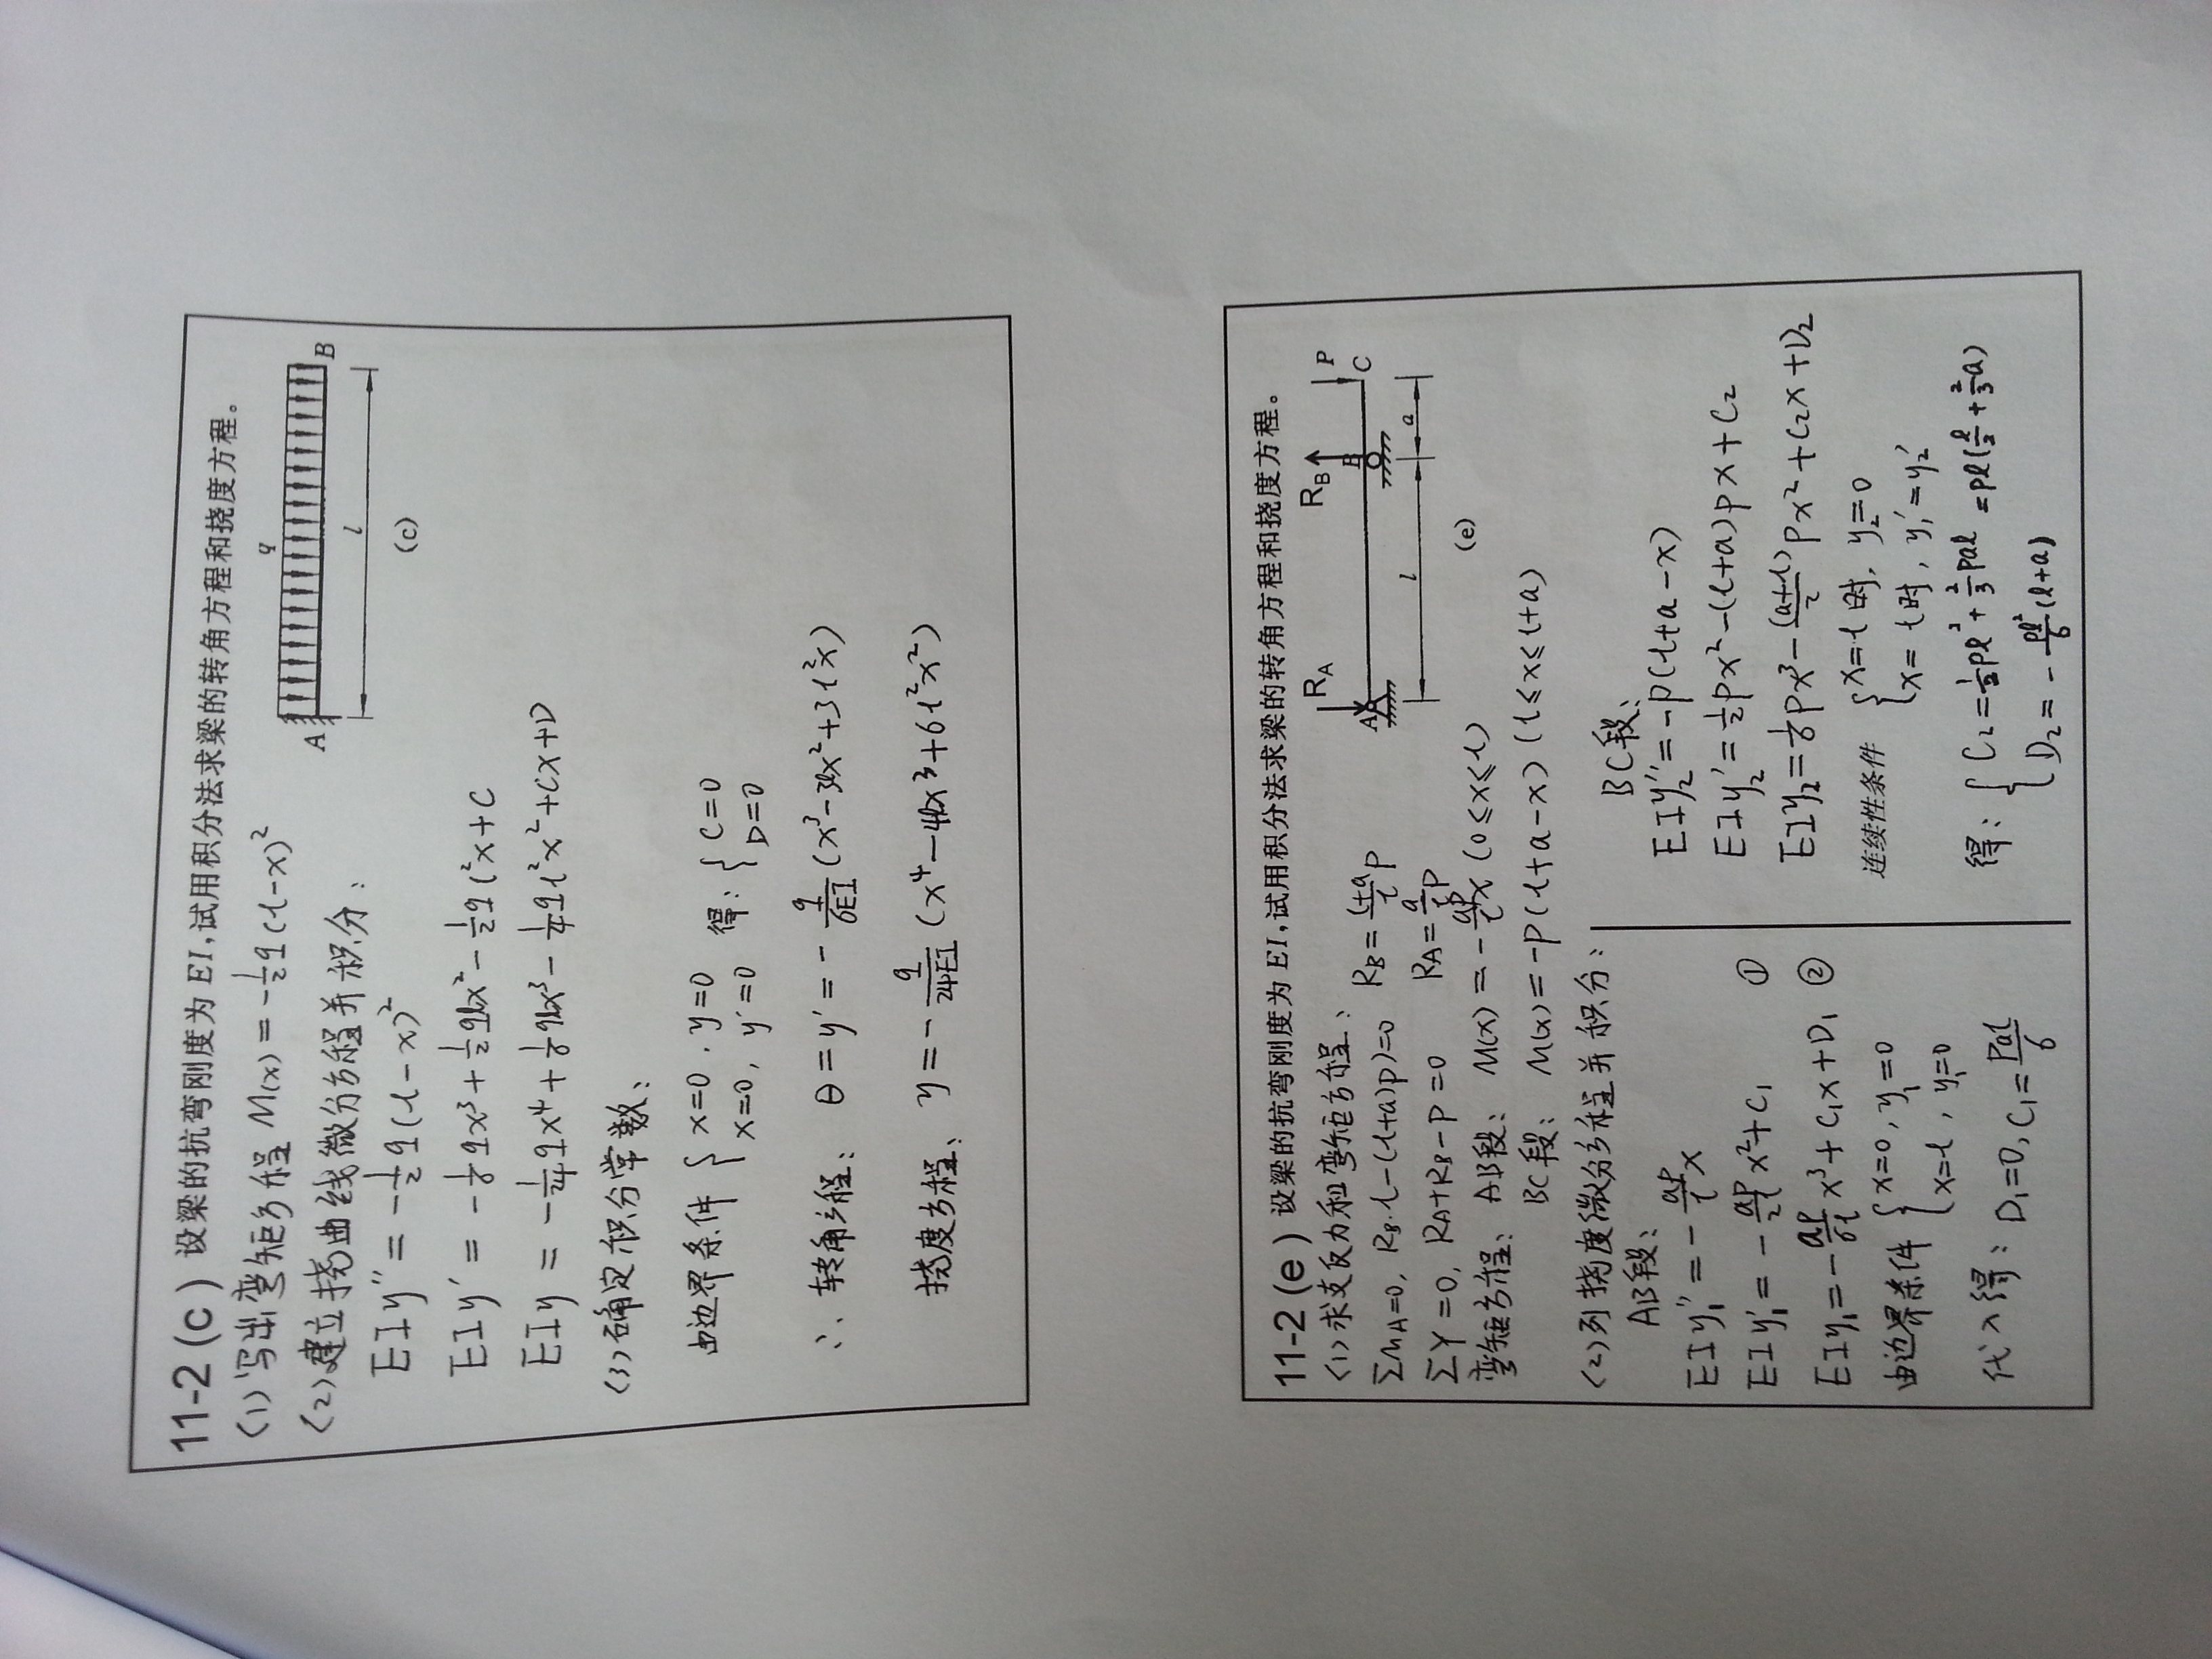 11-2 (c) 设梁的抗弯刚度为 EI,试用积分法求梁的转角方程和挠度方程。
(1)写出弯矩方程 M(x)=-½q(l-x)²
q
A
B
l
(c)
(2)建立挠曲线微分方程并积分:
EIy''=-½q(l-x)²
EIy'=-1/6qx³+½qlx²-½ql²x+C
EIy=-1/24qx⁴+1/6qlx³-1/4ql²x²+Cx+D
(3)确定积分常数:
由边界条件 { x=0, y=0 得: { C=0
x=0, y'=0 D=0
∴ 转角方程: θ=y'=-q/6EI(x³-3lx²+3l²x)
挠度方程: y=-q/24EI(x⁴-4lx³+6l²x²)
11-2 (e) 设梁的抗弯刚度为 EI,试用积分法求梁的转角方程和挠度方程。
(1)求支反力和弯矩方程:
ΣmA=0, RB·l-(l+a)P)=0 RB=(l+a)/l P
ΣY=0, RA+RB-P=0 RA=a/l P
RA
RB
P
A
B
C
l
a
(e)
弯矩方程: AB段: M(x)=-aP/l x (0≤x≤l)
BC段: M(x)=-P(l+a-x) (l≤x≤l+a)
(2)列挠度微分方程并积分:
AB段:
EIy₁''=-aP/l x
EIy₁'=-aP/2l x²+C₁ ①
EIy₁=-aP/6l x³+C₁x+D₁ ②
由边界条件 { x=0, y₁=0
x=l, y₁=0
代入得: D₁=0, C₁=Pal/6
BC段:
EIy₂''=-P(l+a-x)
EIy₂'=½Px²-(l+a)Px+C₂
EIy₂=1/6Px³-(a+l)/2 Px²+C₂x+D₂
连续性条件 { x=l时, y₂=0
x=l时, y₁'=y₂'
得: { C₂=½Pl²+⅔Pal=Pl(l/2+⅔a)
D₂=-Pl²/6(l+a)